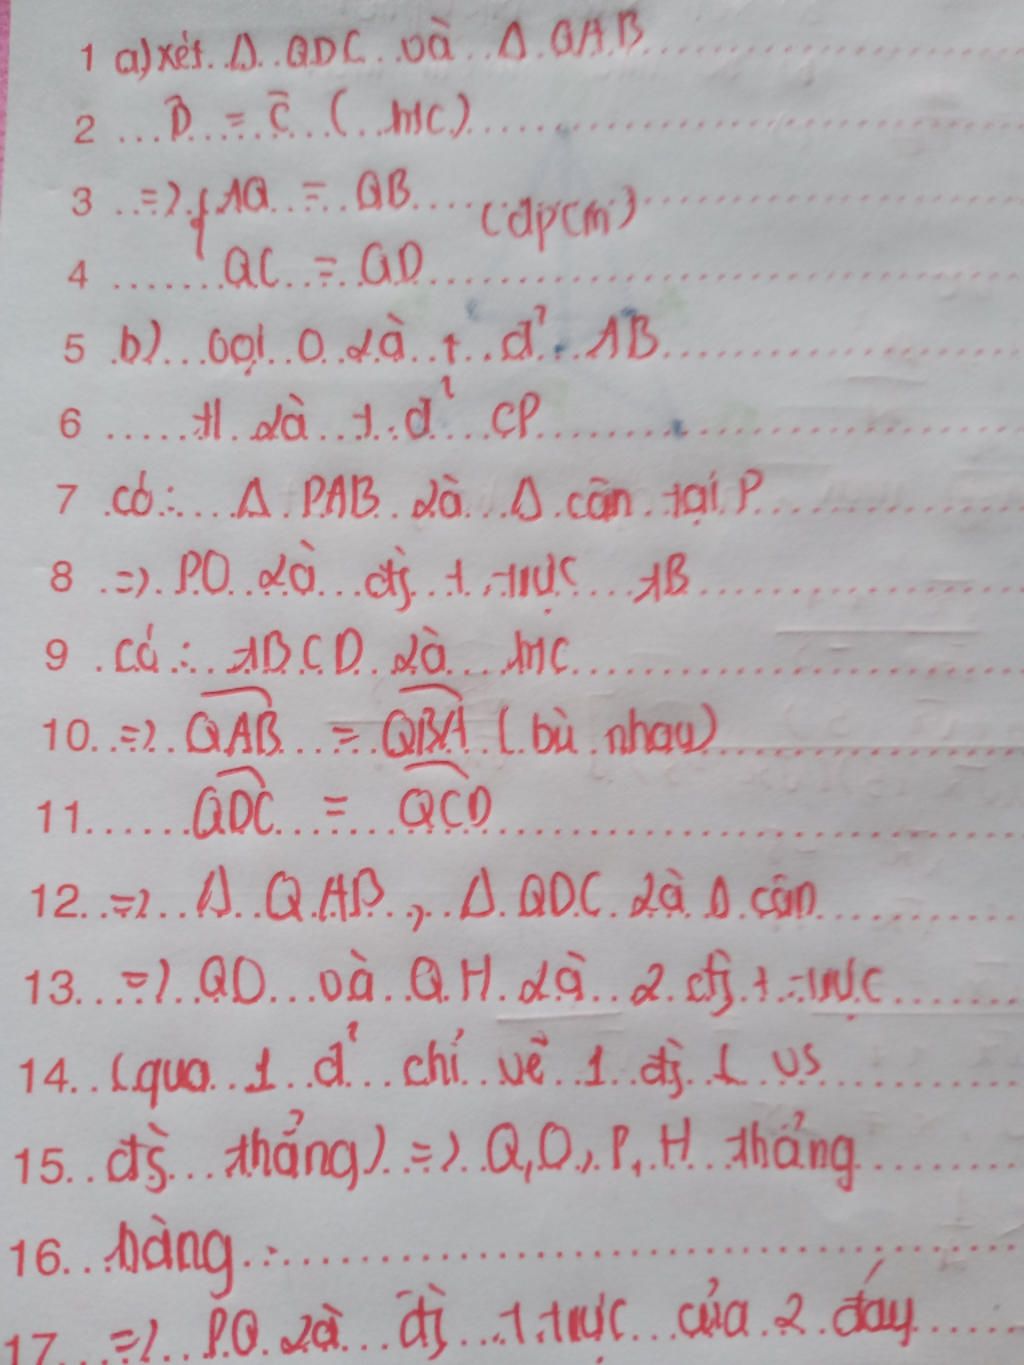 1 a) xét Δ QDC và Δ QAB
2 D̂ = Ĉ (mc)
3 => { AQ = QB (đpcm)
4 QC = QD
5 b) Gọi O là t đ' AB
6 H là t đ' CP
7 có: Δ PAB là Δ cân tại P
8 => PO là đg t trực AB
9 có: ABCD là mc
10 => QAB = QBA (bù nhau)
11 QDC = QCD
12 => Δ QAB, Δ QDC là Δ cân
13 => QO và QH là 2 đg t trực
14 (qua 1 đ' chỉ vẽ 1 đg ⊥ vs
15 đg thẳng) => Q, O, P, H thẳng
16 hàng.
17 => PQ là đg t trực của 2 đáy